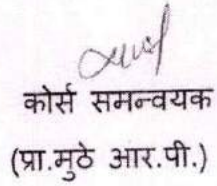 कोर्स समन्वयक
(प्रा.मुठे आर.पी.)